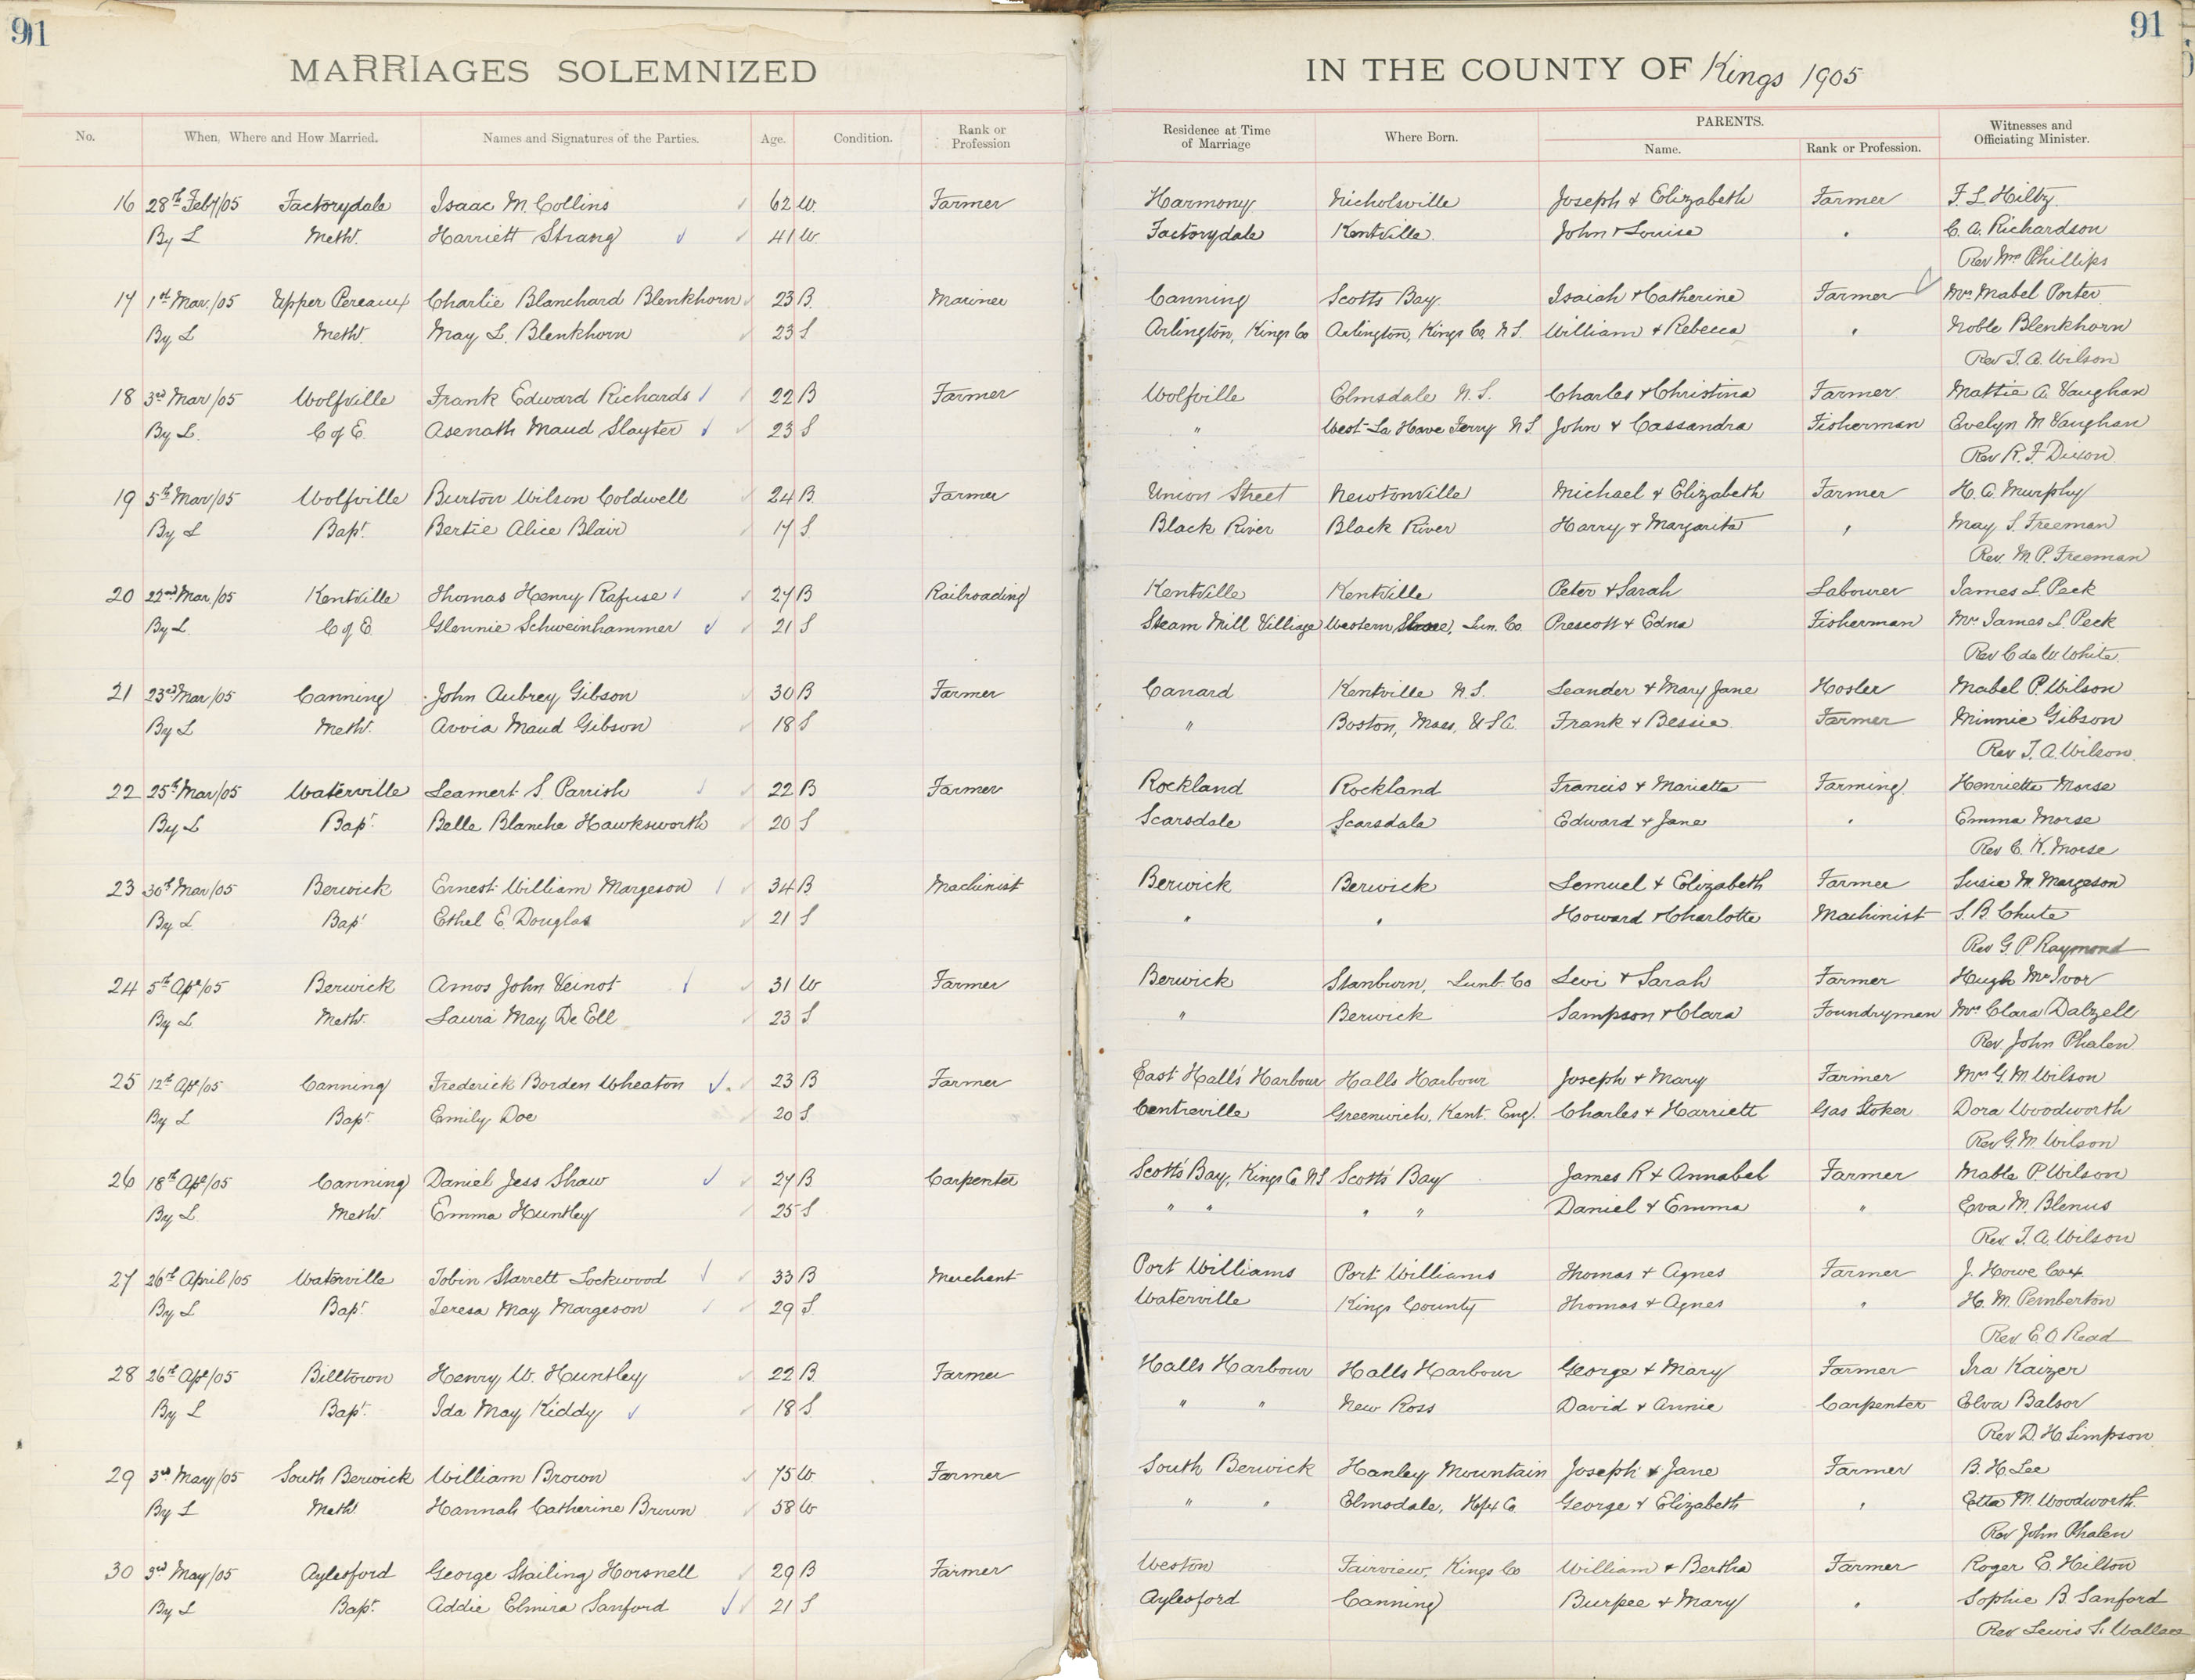 91 91
MARRIAGES SOLEMNIZED IN THE COUNTY OF Kings 1905
No. When, Where and How Married. Names and Signatures of the Parties. Age. Condition. Rank or Profession Residence at Time of Marriage Where Born. PARENTS. Name. Rank or Profession. Witnesses and Officiating Minister.
16 28th Feby/05 Factorydale Isaac M. Collins 62 W. Farmer Harmony Nicholsville Joseph & Elizabeth Farmer F. L. Hiltz
By L Meth. Harriett Strang 41 W Factorydale Kentville John & Louise " C. A. Richardson
Rev Wm Phillips
17 1st Mar./05 Upper Pereaux Charlie Blanchard Blenkhorn 23 B. Mariner Canning Scotts Bay Isaiah & Catherine Farmer Mrs Mabel Porter
By L Meth. May L. Blenkhorn 23 S Arlington, Kings Co Arlington, Kings Co, N S. William & Rebecca " Noble Blenkhorn
Rev J. A. Wilson
18 3rd Mar/05 Wolfville Frank Edward Richards 22 B Farmer Wolfville Elmsdale N. S. Charles & Christina Farmer Mattie A. Vaughan
By L. C of E. Asenath Maud Slayter 23 S " West La Have Ferry N S John & Cassandra Fisherman Evelyn M Vaughan
Rev R. F. Dixon
19 5th Mar/05 Wolfville Burton Wilson Coldwell 24 B. Farmer Union Street Newtonville Michael & Elizabeth Farmer H. A. Murphy
By L Bapt. Bertie Alice Blair 17 S. Black River Black River Harry & Margarita " May S. Freeman
Rev. M. P. Freeman
20 22nd Mar./05 Kentville Thomas Henry Rafuse 27 B Railroading Kentville Kentville Peter & Sarah Labourer James L. Peck
By L. C of E. Glennie Schweinhammer 21 S Steam Mill Village Western Shore, Lun. Co. Prescott & Edna Fisherman Mrs James L. Peck
Rev C de W. White
21 23rd Mar/05 Canning John Aubrey Gibson 30 B Farmer Canard Kentville N. S. Leander & Mary Jane Hosler Mabel P. Wilson
By L Meth. Avvia Maud Gibson 18 S " Boston, Mass, U S A. Frank & Bessie Farmer Minnie Gibson
Rev J. A. Wilson.
22 25th Mar/05 Waterville Leamert S. Parrish 22 B Farmer Rockland Rockland Francis & Marietta Farming Henrietta Morse
By L Bapt. Belle Blanche Hawksworth 20 S Scarsdale Scarsdale Edward & Jane " Emma Morse
Rev C. K. Morse
23 30th Mar/05 Berwick Ernest William Margeson 34 B Machinist Berwick Berwick Lemuel & Elizabeth Farmer Susie M Margeson
By L Bapt Ethel E. Douglas 21 S " " Howard & Charlotte Machinist S. B. Chute
Rev G. P. Raymond
24 5th Apl/05 Berwick Amos John Veinot 31 W Farmer Berwick Stanburn, Lunb. Co Levi & Sarah Farmer Hugh McIvor
By L Meth. Laura May De Ell 23 S " Berwick Sampson & Clara Foundryman Mrs Clara Dalzell
Rev John Phalen
25 12th Apl/05 Canning Frederick Borden Wheaton 23 B Farmer East Hall's Harbour Halls Harbour Joseph & Mary Farmer Mrs G. M. Wilson
By L Bapt. Emily Doe 20 S Centreville Greenwich, Kent. Eng. Charles & Harriett Gas Stoker Dora Woodworth
Rev G. M. Wilson
26 18th Apl/05 Canning Daniel Jess Shaw 27 B Carpenter Scott's Bay, Kings Co N S Scott's Bay James R & Annabel Farmer Mable P. Wilson
By L. Meth. Emma Huntley 25 S " " " " Daniel & Emma " Eva M. Blenus
Rev. J. A. Wilson
27 26th April/05 Waterville Tobin Starrett Lockwood 33 B Merchant Port Williams Port Williams Thomas & Agnes Farmer J. Howe Cox
By L Bapt Teresa May Margeson 29 S. Waterville Kings County Thomas & Agnes " H. M. Pemberton
Rev E. O Read
28 26th Apl/05 Billtown Henry W. Huntley 22 B. Farmer Halls Harbour Halls Harbour George & Mary Farmer Ira Kaizer
By L Bapt. Ida May Kiddy 18 S. " " New Ross David & Annie Carpenter Elva Balsor
Rev D. H. Simpson
29 3rd May/05 South Berwick William Brown 75 W Farmer South Berwick Hanley Mountain Joseph & Jane Farmer B. H. Lee
By L Meth. Hannah Catherine Brown 58 W " " Elmsdale, Hfx Co. George & Elizabeth " Etta M. Woodworth
Rev John Phalen
30 3rd May/05 Aylesford George Stailing Horsnell 29 B Farmer Weston Fairview, Kings Co William & Bertha Farmer Roger E. Hilton
By L Bapt. Addie Elmira Sanford 21 S Aylesford Canning Burpee & Mary " Sophie B. Sanford
Rev Lewis F. Wallace